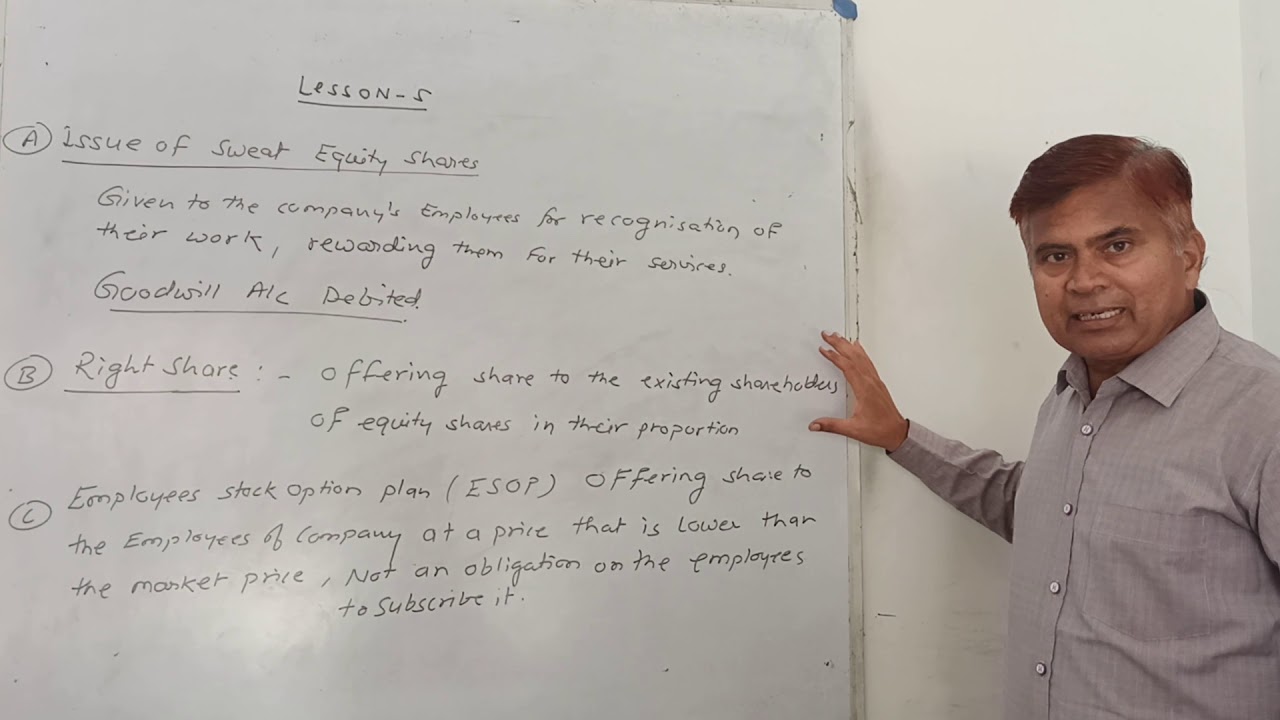 Lesson-5
A Issue of Sweat Equity Shares
Given to the company's Employees for recognisation of
their work, rewarding them for their services.
Goodwill A/c Debited.
B Right Share :- Offering share to the existing shareholders
of equity shares in their proportion
C Employees stock option plan (ESOP) Offering share to
the Employees of Company at a price that is Lower than
the market price, Not an obligation on the employees
to subscribe it.